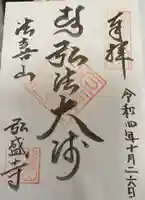 奉拝
令和四年十月二六日
弘法大师
法喜山
弘盛寺